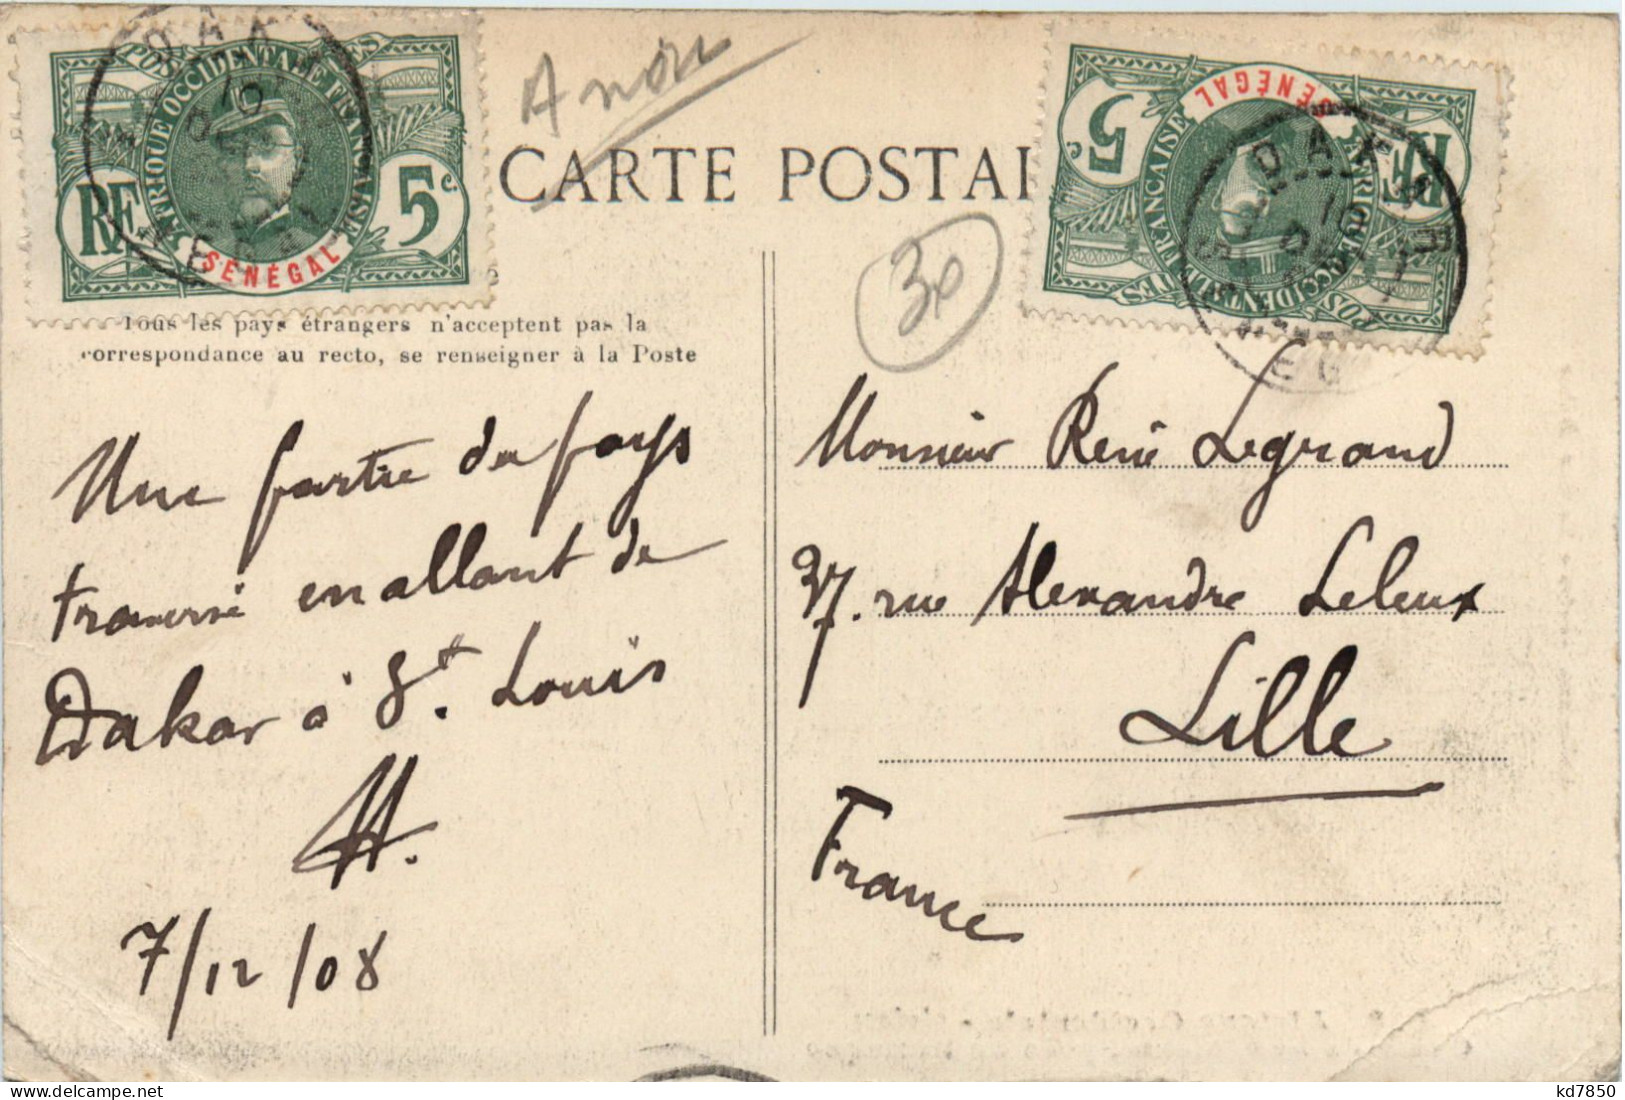 POSTES
AFRIQUE OCCIDENTALE FRANÇAISE
RF
5 c.
SÉNÉGAL
DAKAR
A noir
CARTE POSTAL
30
POSTES
AFRIQUE OCCIDENTALE FRANÇAISE
RF
5 c.
SÉNÉGAL
DAKAR
Tous les pays étrangers n'acceptent pas la
correspondance au recto, se renseigner à la Poste
Une partie du pays
traversé en allant de
Dakar à St. Louis
7/12/08
Monsieur René Legrand
37. rue Alexandre Leleux
Lille
France
kd7850